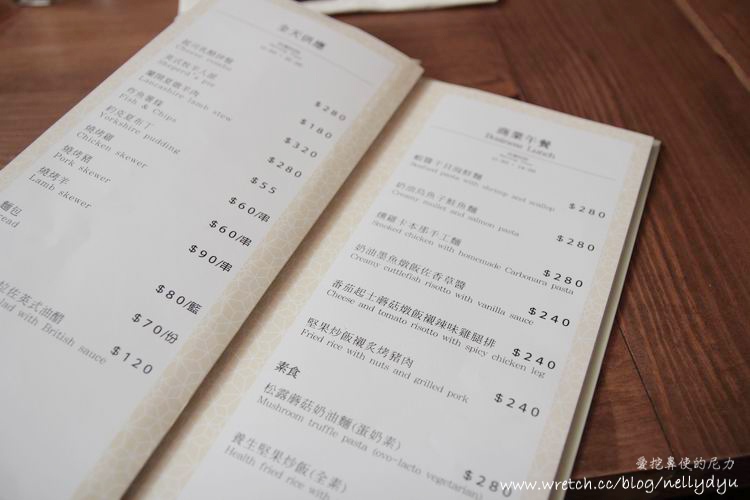 全天供應
綜司乳酪拼盤
Cheese combo
$280
英式牧羊人派
shepherd's pie
$180
蘭開夏燉羊肉
Lancashire lamb stew
$320
炸魚薯條
Fish & Chips
$280
約克夏布丁
Yorkshire pudding
$55
燒烤雞
Chicken skewer
$60/串
燒烤豬
Pork skewer
$60/串
燒烤羊
Lamb skewer
$90/串
麵包
$80/籃
$70/份
佐英式油醋
with British sauce
$120
商業午餐
Business Lunch
蝦醬干貝海鮮麵
Seafood pasta with shrimp and scallop
$280
奶油烏魚子鮭魚麵
Creamy mullet and salmon pasta
$280
燻雞卡本那手工麵
Smoked chicken with homemade Carbonara pasta
$280
奶油墨魚燉飯佐香草醬
Creamy cuttlefish risotto with vanilla sauce
$240
番茄起士蘑菇燉飯襯辣味雞腿排
Cheese and tomato risotto with spicy chicken leg
$240
堅果炒飯襯炙烤豬肉
Fried rice with nuts and grilled pork
$240
素食
松露蘑菇奶油麵(蛋奶素)
Mushroom truffle pasta (ovo-lacto vegetarian)
$280
養生堅果炒飯(全素)
Health fried rice with
愛挖鼻使的尼力
www.wretch.cc/blog/nellydyu